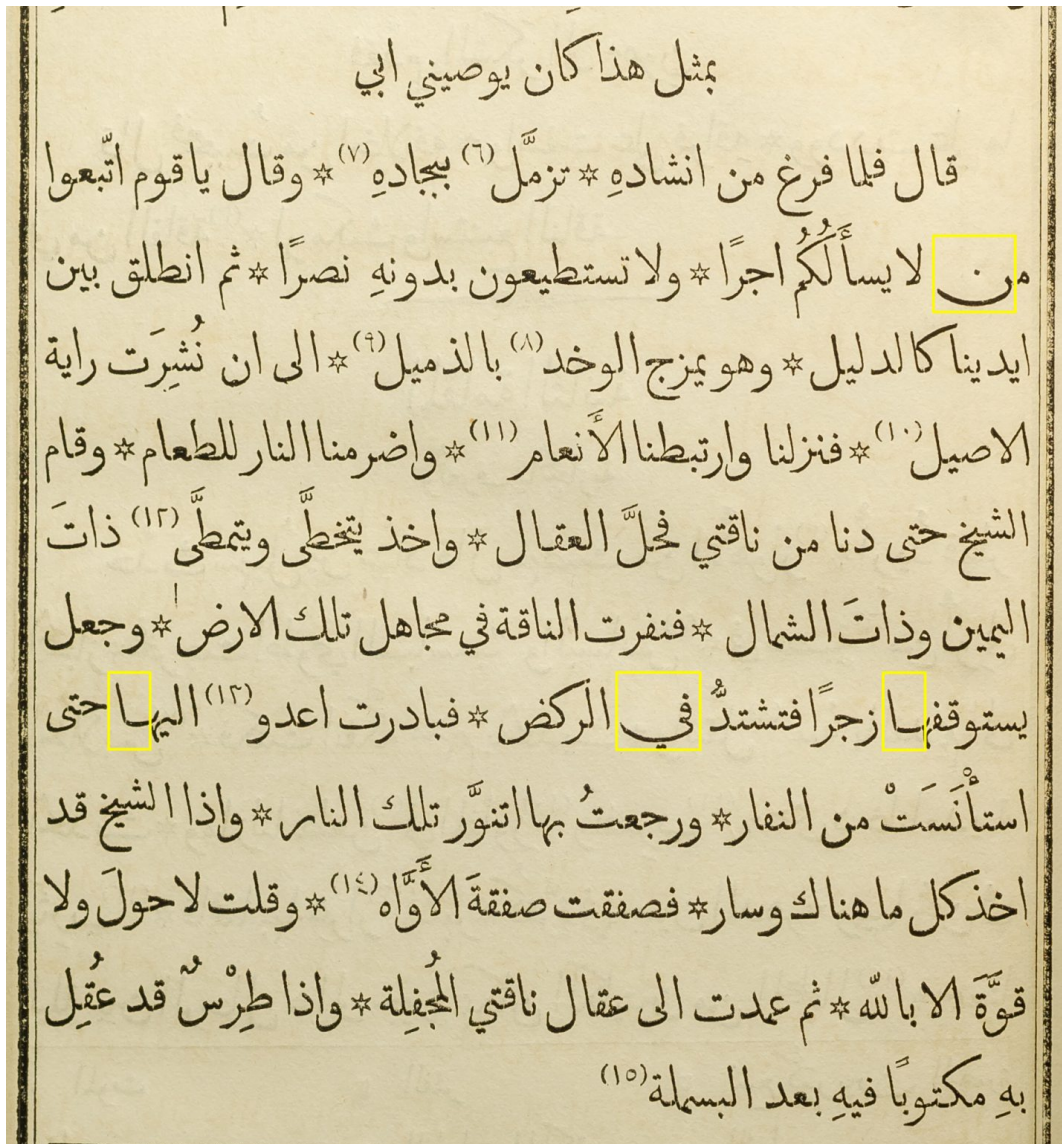 بمثل هذا كان يوصيني ابي
قال فلما فرغ من انشادهِ ✡ تزمَّل (٦) ببجادهِ (٧) ✡ وقال يا قوم اتّبعوا
من لا يسأَلُكُم اجرًا ✡ ولا تستطيعون بدونهِ نصرًا ✡ ثم انطلق بين
ايدينا كالدليل ✡ وهو يمزج الوخد (٨) بالذميل (٩) ✡ الى ان نُشِرَت راية
الاصيل (١٠) ✡ فنزلنا وارتبطنا الأَنعام (١١) ✡ واضرمنا النار للطعام ✡ وقام
الشيخ حتى دنا من ناقتي فحلَّ العقال ✡ واخذ يتخطَّى ويتمطَّى (١٢) ذاتَ
اليمين وذاتَ الشمال ✡ فنفرت الناقة في مجاهل تلك الارض ✡ وجعل
يستوقفها زجرًا فتشتدُّ في الركض ✡ فبادرت اعدو (١٣) اليها حتى
استأْنَسَتْ من النفار ✡ ورجعتُ بها اتنوَّر تلك النار ✡ واذا الشيخ قد
اخذ كل ما هناك وسار ✡ فصفقت صفقةَ الأَوَّاه (١٤) ✡ وقلت لا حولَ ولا
قوَّةَ الا بالله ✡ ثم عمدت الى عقال ناقتي المُجفِلة ✡ واذا طِرْسٌ قد عُقِل
بهِ مكتوبًا فيهِ بعد البسملة (١٥)